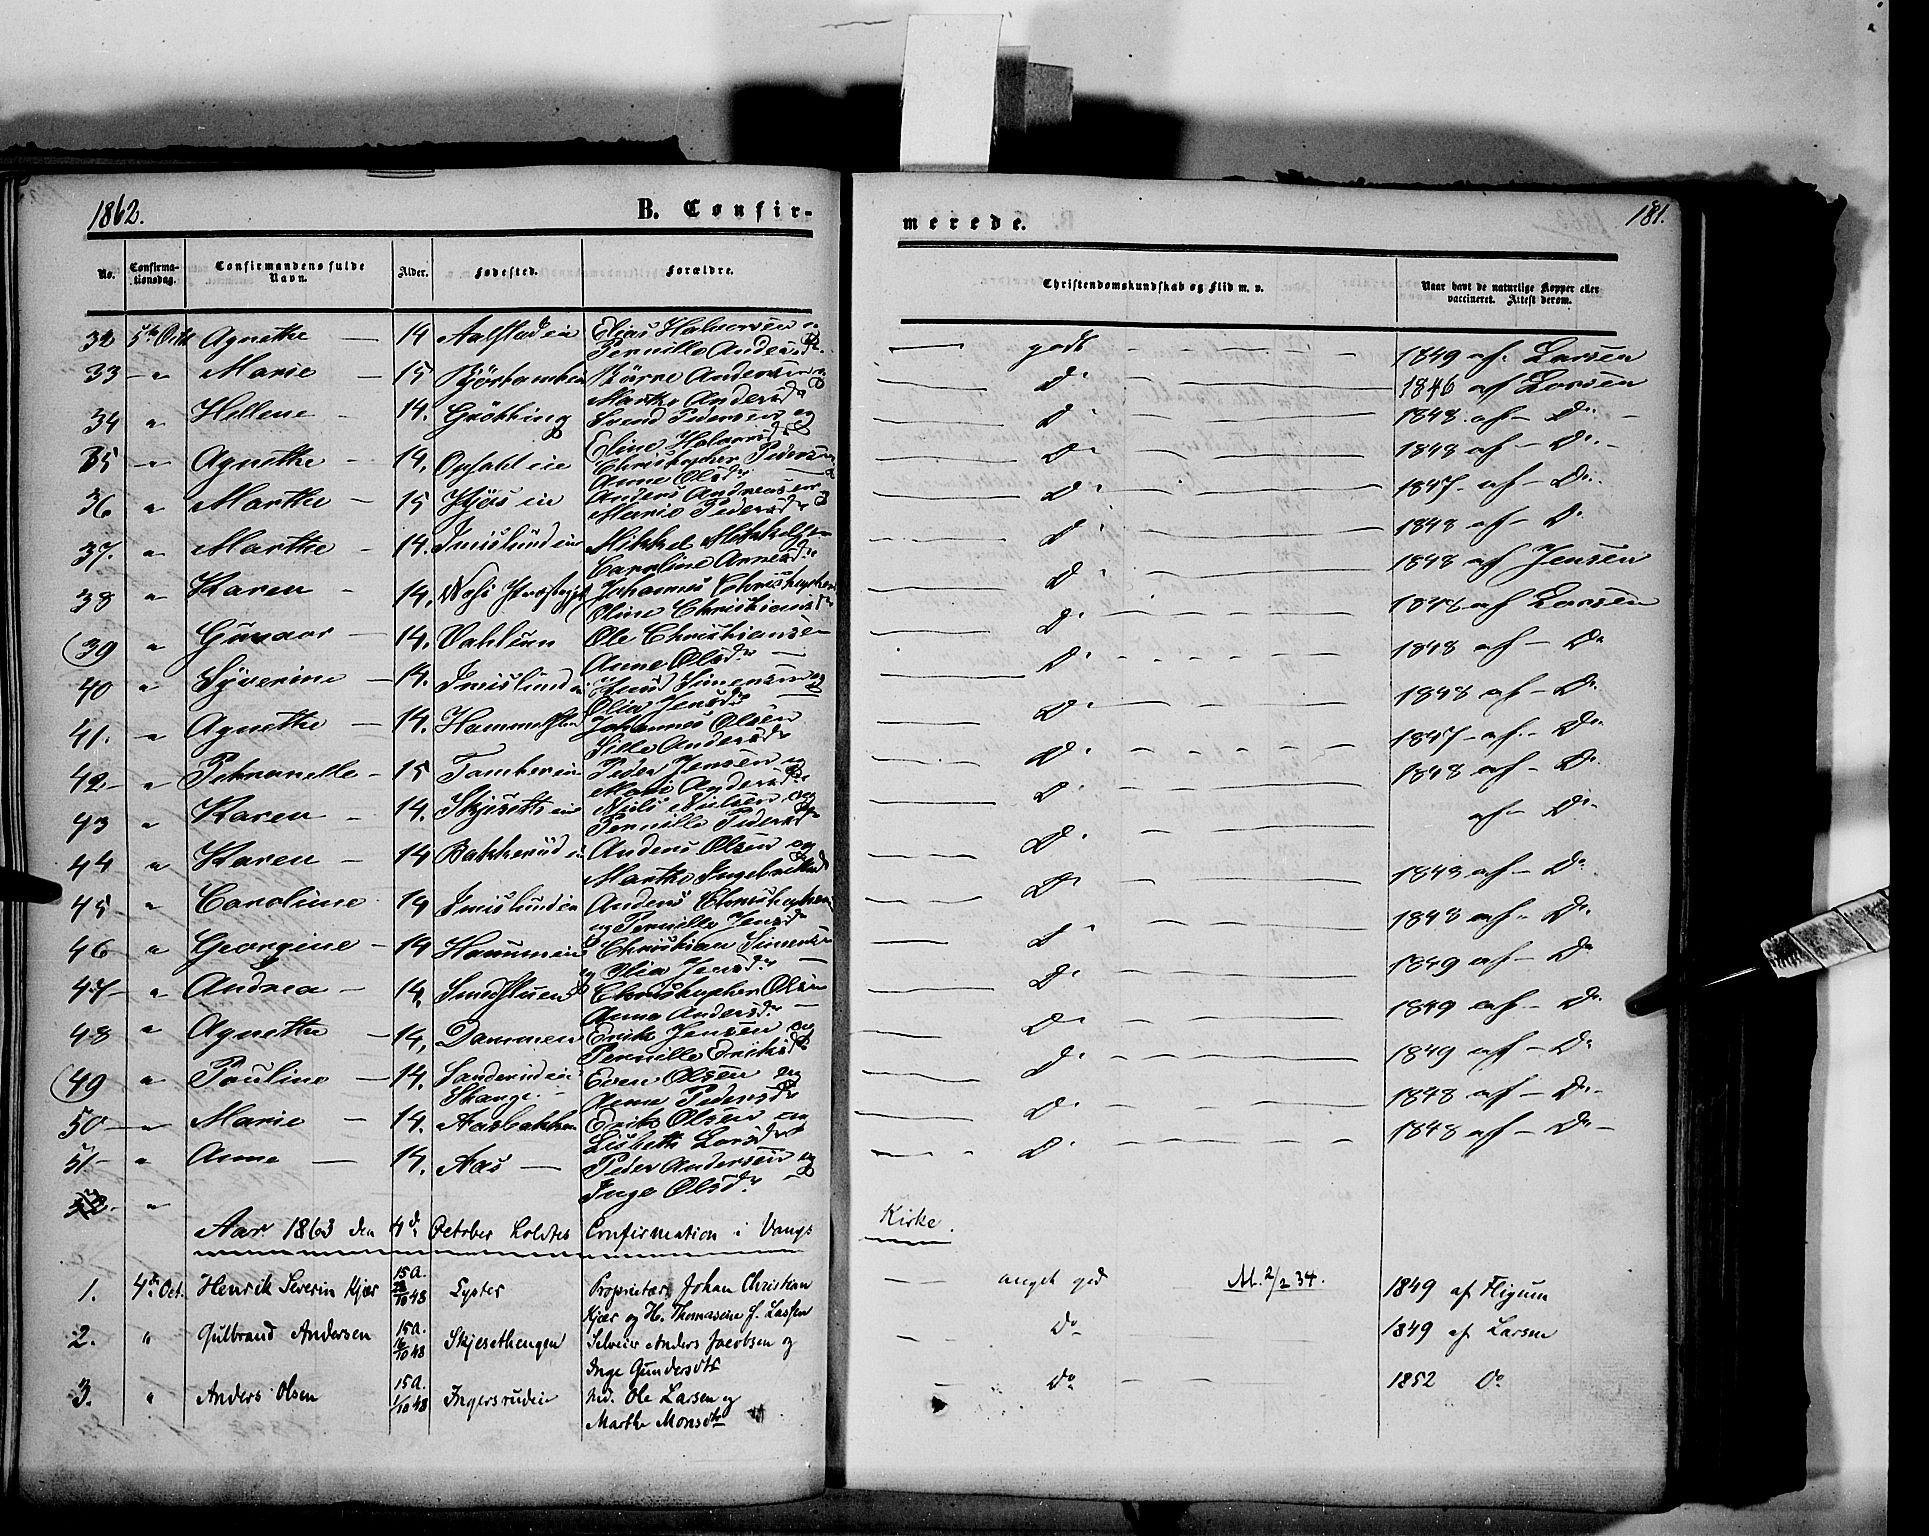 1862.
B. Confir-
merede.
181.
No.
Confirma-
tionsdag.
Confirmandens fulde
Navn.
Alder.
Fødested.
Forældre.
Christendomskundskab og Flid m. v.
Naar havt de naturlige Kopper eller
vaccineret. Attest derom.
32 5te Octb Agnethe — 14 Aalstad eie Elias Halvorsen og
Pernille Andersdr. godt 1849 af Larsen
33 - " Marie - 15 Børre Andersen og
Marthe Andersdr Do 1846 af Larsen
34 " Hellene - 14. Grötting Svend Pedersen og
Eline Halvorsdr Do 1848 af - Do -
35 - " Agnethe - 14, Opsahl eie Christopher Pedersen
Anne Olsdr. Do 1848 af - Do -
36 " Marthe - 15 Hjös eie Anders Andreasen
Marie Pedersdr Do 1847 - af - Do
37. " Marthe - 14. Imislund eie Mikkel Mikkelsen
Caroline Arnesdr Do 1848 af - Do
38 " Karen - 14. Næs Præstegj Johannes Christophersen
Oline Christiansdr Do 1848 af Jensen
(39 " Gunaar — 14. Vahlun Ole Christiansen
Anne Olsdr. — Do 1848 af Larsen
40 " Syverine — 14. Imislund eie Simensen og
Olia Jensdr Do 1848 af - Do
41. " Agnethe — 14. Johannes Olsen
Sille Andersdr Do 1848 af - Do
42 - " Petronelle - 15 Tomter eie Peder Jensen og
Mari Andersdr Do 1847 - af - Do
43 " Karen - 14. Skjeseth eie Niels Nielsen og
Pernille Pedersdr Do 1848 af - Do
44 " Karen - 14 Bakkerud eie Anders Olsen og
Marthe Ingebretsdr Do af - Do -
45 - " Caroline 14 Imislund eie Anders Christophersen
og Pernille Jensdr Do 1848 af - Do
46 " Georgine - 14 Hammer eie Christian Simensen
og Olia Jensdr. — Do 1848 af - Do
47 - " Andrea — 14. Smedstuen Christopher Olsen
Anne Andersdr. — Do 1849 af - Do
48 " Agnethe — 14, Dammen Erik Jensen og
Pernille Eriksdr Do 1849 af - Do
(49 " Pouline — 14. Sanderud eie
Stange. - Even Olsen og
Anne Pedersdr Do 1849 af - Do
50 - " Marie — 14. Aasbakken Erik Olsen og
Lisbeth Larsdr Do 1848 af - Do -
51 - " Anne — 14. Aas — Peder Andersen og
Inge Olsdr. Do 1848 af - Do -
52 - "
Aar 1863 den 4de October holdtes Confirmation i Vangs Kirke.
1. 4de Oct. Henrik Severin Kjær 15 A.
/10 48 Lyster Proprietær Johan Christian
Kjær og H. Thomasine f. Lassen meget god M. 2/2 34. 1849 af Fligum
2. " Gulbrand Andersen 15 A.
16/10 48 Skjesethengen Selveier Anders Jacobsen og
Inge Gundersdtr Do 1849 af Larsen
3. " Anders Olsen 15 A.
1/10 48 Ingersrudeie Md. Ole Larsen og
Marthe Monsdtr Do 1852 Do